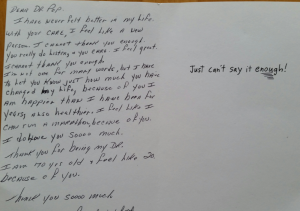 Dear DR Pop
I have never felt better in my life.
with you care, I feel like a new
person. I cannot thank you enough
you really do listing + you care I feel great.
I cannot thank you enough
I'm not one for many words, but I have
to let you know just how much you have
changed my life, because of you I
am happier than I have been for
years, also healther. I feel like I
can run a marathon, because of you.
I do love you soooo much.
Thank you for being my DR.
I am 70 yes old + feel like 20
because of you.
Thank you soooo much
Just can't say it enough!